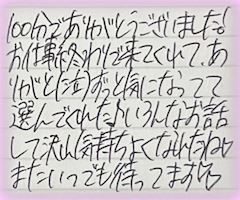 100分でありがとうございました!
お仕事終わりで来てくれて、あ
りがと(泣)ずっと気になってて
選んでくれたんいろんなお話
して沢山気持ちよくなれたね
またいつでも待ってます